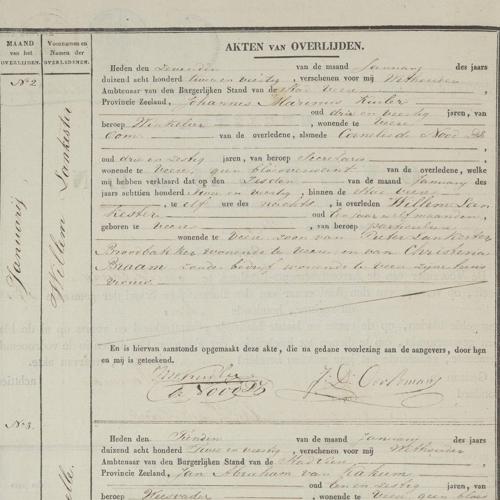 MAAND
van het
OVERLIJDEN.
Voornamen en
Namen der
OVERLEDENEN.
AKTEN VAN OVERLIJDEN.
No 2
Januarij
Willem Lankester
Heden den Zevenden van de maand Januarij des jaars
duizend acht honderd twee en veertig, verschenen voor mij Wethouder
Ambtenaar van den Burgerlijken Stand van de Stad Veere
Provincie Zeeland, Johannes Marinus
oud drie en veertig jaren, van
beroep Winkelier, wonende te Veere
Oom van de overledene, alsmede Cornelis de Nood
oud drie en zestig jaren, van beroep Secretaris
wonende te Veere, geen bloedverwant van de overledene, welke
mij hebben verklaard dat op den Zesden van de maand Januarij des
jaars achttien honderd twee en veertig, binnen de Stad Veere
te elf ure des nachts, is overleden Willem Lan
kester oud een jaar elf maanden,
geboren te Veere, van beroep particulier
wonende te Veere, zoon van Pieter Lankester
Broodbakker wonende te Veere en van Christina
Braam zonder bedrijf wonende te Veere zijne huis
vrouw
En is hiervan aanstonds opgemaakt deze akte, die na gedane voorlezing aan de aangevers, door hen
en mij is geteekend.
No 3.
Heden den Tienden van de maand Januarij des jaars
duizend acht honderd Twee en veertig, verschenen voor mij Wethouder
Ambtenaar van den Burgerlijken Stand van de Stad Veere
Provincie Zeeland, Jan Abraham van
oud een en zestig jaren, van
beroep wonende te Veere geen